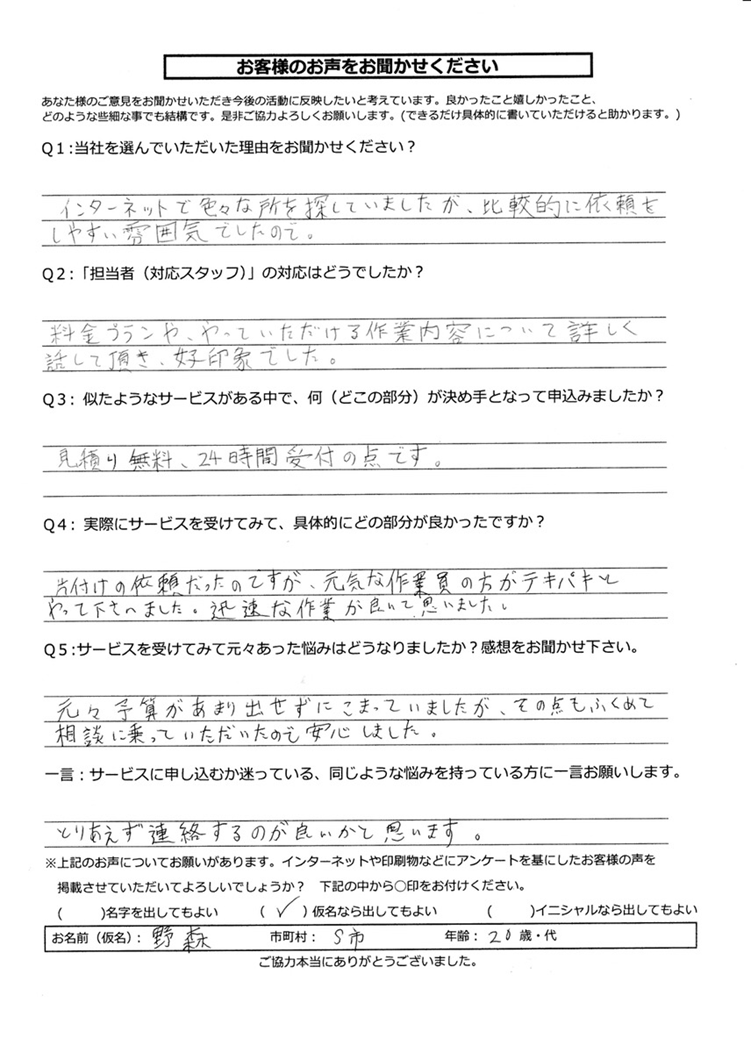 お客様のお声をお聞かせください
あなた様のご意見をお聞かせいただき今後の活動に反映したいと考えています。良かったこと嬉しかったこと、
どのような些細な事でも結構です。是非ご協力よろしくお願いします。(できるだけ具体的に書いていただけると助かります。)
Q1:当社を選んでいただいた理由をお聞かせください？
インターネットで色々な所を探していましたが、比較的に依頼を
しやすい雰囲気でしたので。
Q2:「担当者（対応スタッフ）」の対応はどうでしたか？
料金プランや、やっていただける作業内容について詳しく
話して頂き、好印象でした。
Q3: 似たようなサービスがある中で、何（どこの部分）が決め手となって申込みましたか？
見積り無料、24時間受付の点です。
Q4: 実際にサービスを受けてみて、具体的にどの部分が良かったですか？
片付けの依頼だったのですが、元気な作業員の方がテキパキと
やって下さいました。迅速な作業が良いと思いました。
Q5:サービスを受けてみて元々あった悩みはどうなりましたか？感想をお聞かせ下さい。
元々予算があまり出せずにこまっていましたが、その点もふくめて
相談に乗っていただいたので安心しました。
一言：サービスに申し込むか迷っている、同じような悩みを持っている方に一言お願いします。
とりあえず連絡するのが良いかと思います。
※上記のお声についてお願いがあります。インターネットや印刷物などにアンケートを基にしたお客様の声を
掲載させていただいてよろしいでしょうか？ 下記の中から○印をお付けください。
( )名字を出してもよい (✓)仮名なら出してもよい ( )イニシャルなら出してもよい
お名前（仮名）: 野森 市町村: S市 年齢: 20歳・代
ご協力本当にありがとうございました。